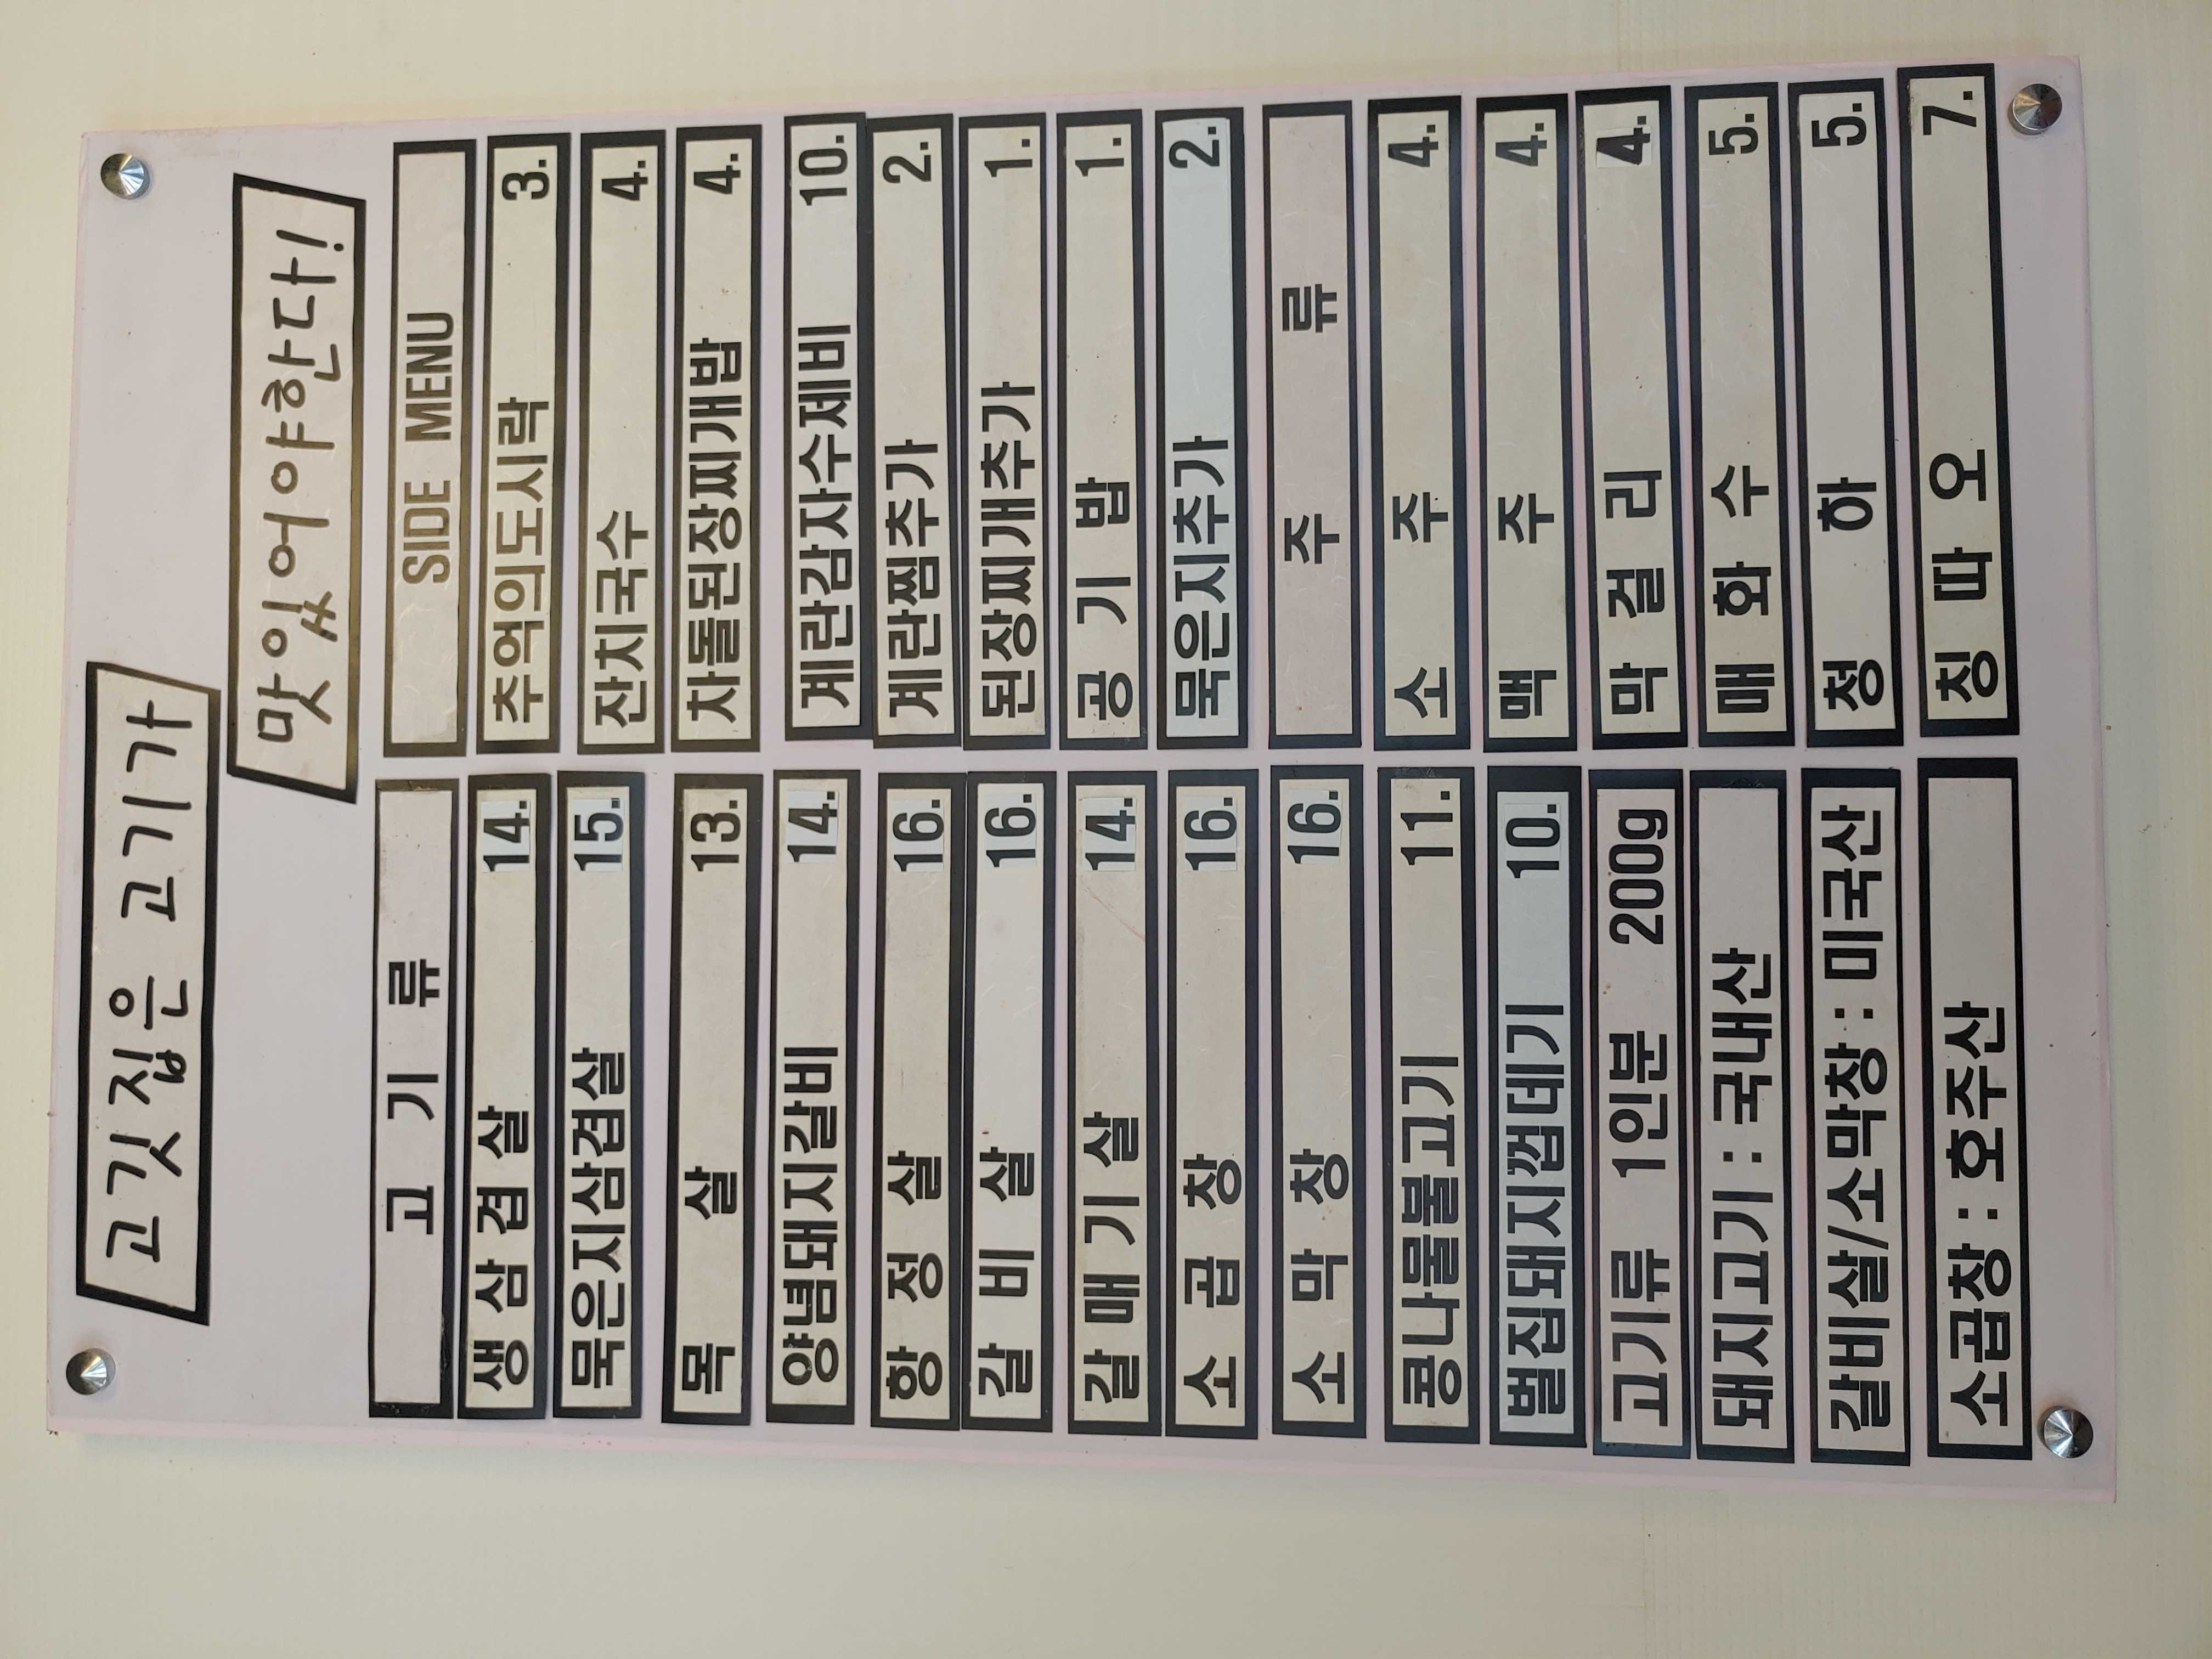 고깃집은 고기가
맛있어야한다!
고 기 류
생삼겹살 14.
묵은지삼겹살 15.
목 살 13.
양념돼지갈비 14.
항 정 살 16.
갈 비 살 16.
갈매기살 14.
소 곱 창 16.
소 막 창 16.
콩나물불고기 11.
벌집돼지껍데기 10.
고기류 1인분 200g
돼지고기 : 국내산
갈비살/소막창 : 미국산
소곱창 : 호주산
SIDE MENU
추억의도시락 3.
잔치국수 4.
차돌된장찌개밥 4.
계란감자수제비 10.
계란찜추가 2.
된장찌개추가 1.
공 기 밥 1.
묵은지추가 2.
주 류
소 주 4.
맥 주 4.
막 걸 리 4.
매 화 수 5.
청 하 5.
칭 따 오 7.